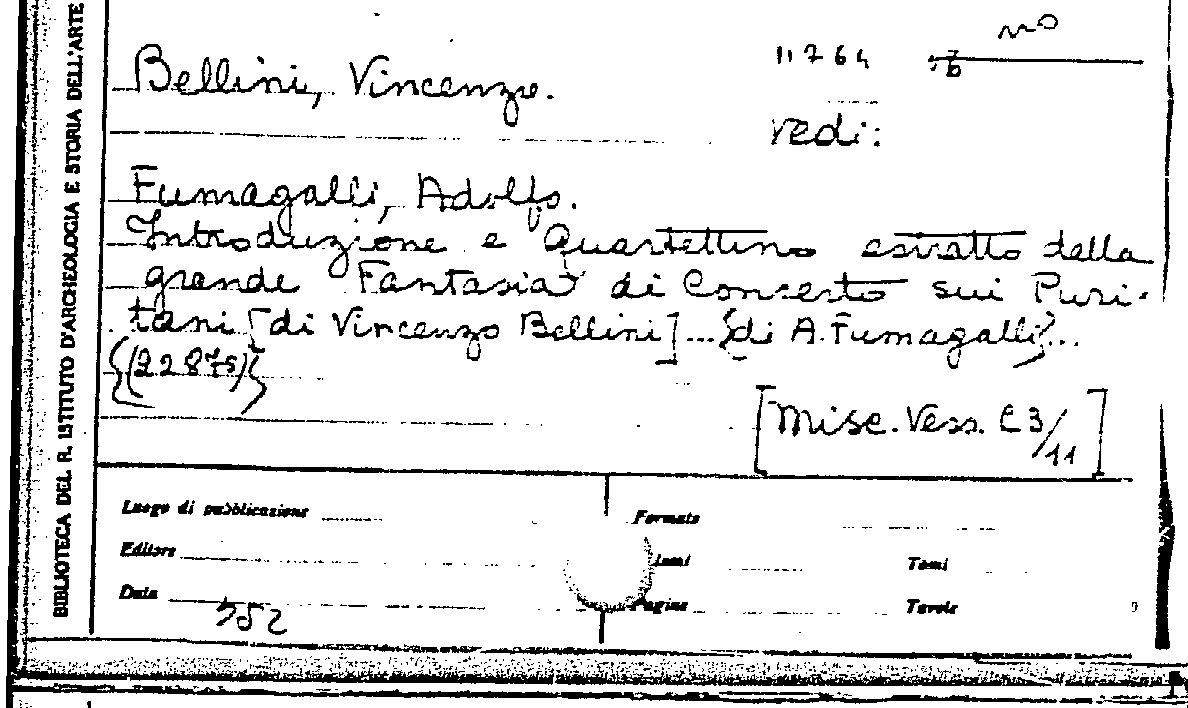 BIBLIOTECA DEL R. ISTITUTO D'ARCHEOLOGIA E STORIA DELL'ARTE
11764
Bellini, Vincenzo.
vedi:
Fumagalli, Adolfo.
Introduzione e Quartettino estratto dalla
grande Fantasia di Concerto sui Puri-
tani [di Vincenzo Bellini]...{di A. Fumagalli}...
{(22875)}
[Misc. Vess. C 3/11]
Luogo di pubblicazione
Formato
Editore
Tomi
Data
Pagine
Tavole